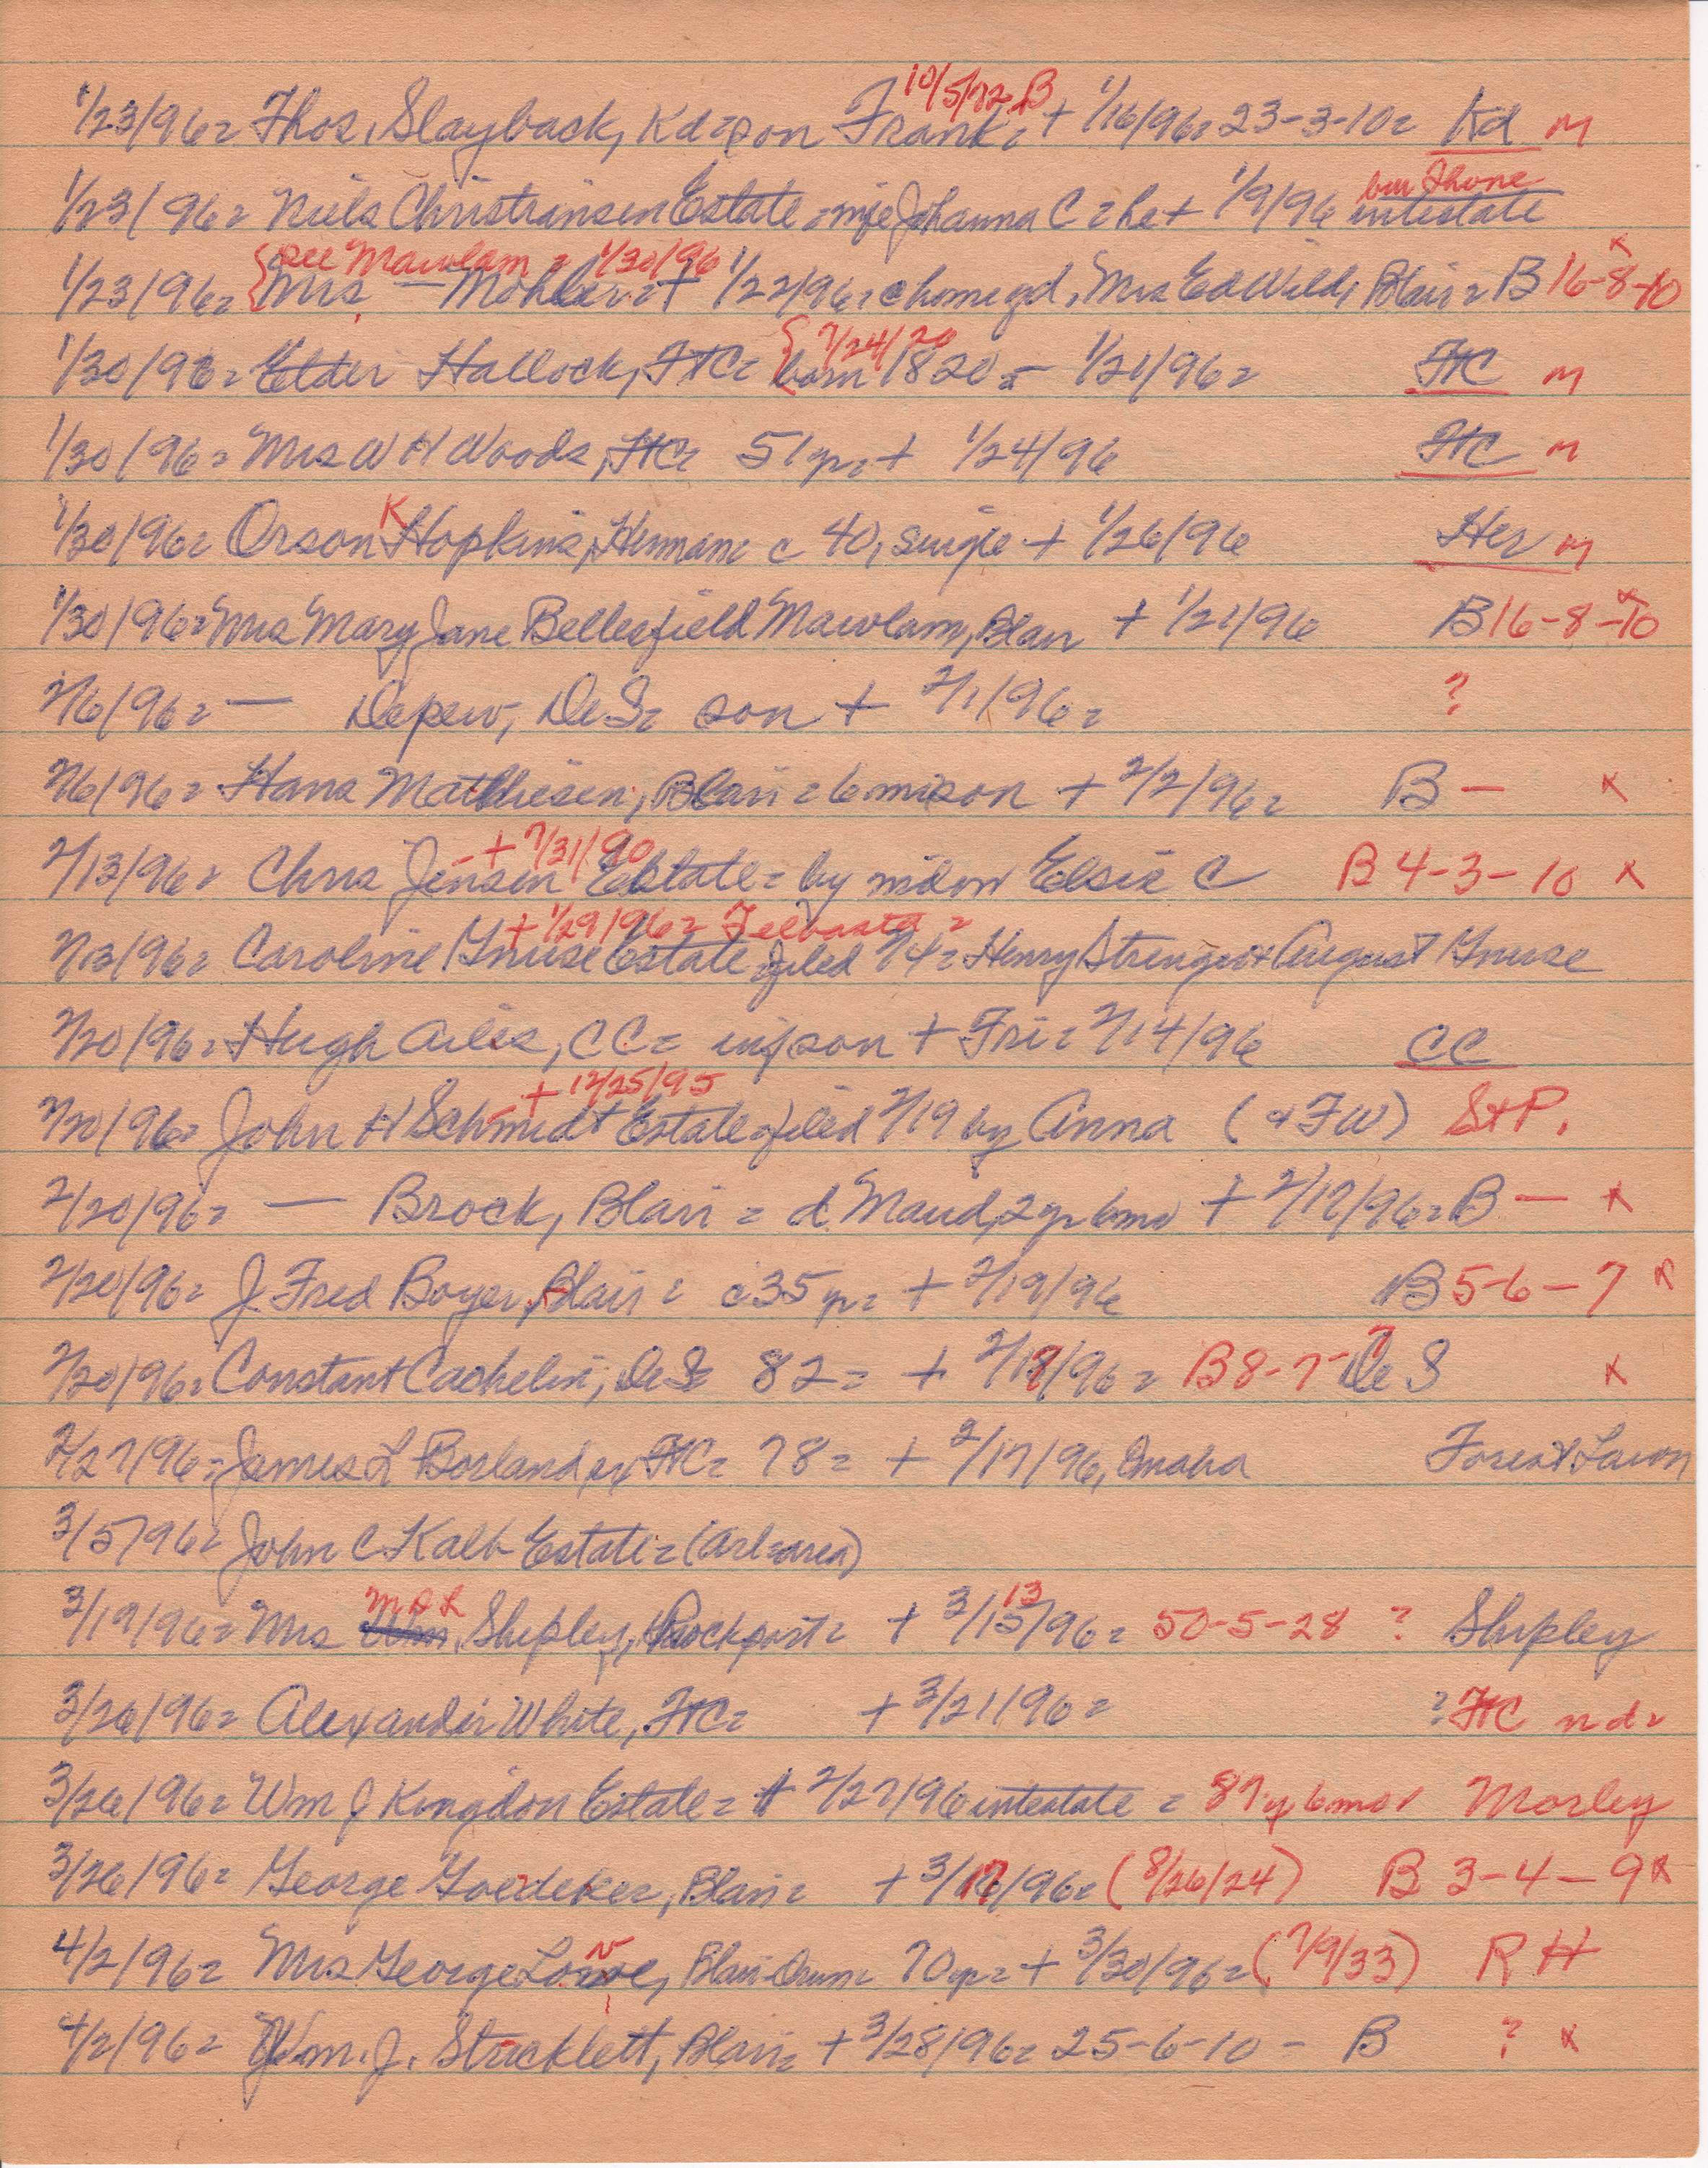 10/5/72 B
1/23/96= Thos. Slayback, Kd= son Frank= + 1/16/96= 23-3-10= Kd m
bur Thone
1/23/96= Niels Christiansen Estate = wife Johanna C = he + 1/9/96 intestate
{see Mawlam = 1/30/96 x
1/23/96= Mrs. — Mohler = + 1/22/96= c home gd, Mrs Ed Wild, Blair = B 16-8-10
7/24/20
1/30/96= Elder Hallock, FtC= {born 1820 = - 1/21/96= FtC m
1/30/96= Mrs W H Woods, FtC= 51yr= + 1/24/96 FtC m
K
1/30/96= Orson Hopkins, Herman= c 40, single + 1/26/96 Her m
1/30/96= Mrs Mary Jane Bellesfield Mawlam, Blair + 1/21/96 B 16-8-10 x
2/6/96= — Depew, DeS= son + 2/1/96= ?
2/6/96= Hans Mathiesen, Blair = 6 mi son + 2/2/96= B — x
- + 7/31/90
2/13/96= Chris Jensen Estate = by widow Elsie C B 4-3-10 x
+ 1/29/96=
2/13/96= Caroline Gnuse Estate filed 2/4= Henry Stenger + August Gnuse
2/20/96= Hugh Ailes, CC= inf son + Fri= 2/14/96 CC
+ 12/25/95
2/20/96= John H Schmidt Estate = filed 2/19 by Anna (& FW) St P.
2/20/96= — Brock, Blair = d Maud, 2yr 6mo + 2/17/96= B — x
2/20/96= J. Fred Boyer, Blair = c35yr= + 2/19/96 B 5-6-7 x
2/20/96= Constant Cachelin, DeS= 82= + 2/18/96= B 8-7-7 De S x
2/27/96= James L Borland, ex FtC= 78= + 2/17/96, Omaha Forest Lawn
3/5/96= John C Kalb Estate = (Arl=area)
M D L 13
3/19/96= Mrs Wm. Shipley, Rockport= + 3/15/96= 50-5-28 ? Shipley
3/26/96= Alexander White, FtC= + 3/21/96= ? FtC n d=
3/26/96= Wm J Kingdon Estate = + 2/27/96 intestate = 87y 6mo Morley
3/26/96= George Goedeker, Blair= + 3/17/96= (8/26/24) B 3-4-9 x
4/2/96= Mrs George Lowe, Blair= 70yr= + 3/30/96= (7/9/33) R H
4/2/96= Wm. J. Stricklett, Blair= + 3/28/96= 25-6-10 - B ? x